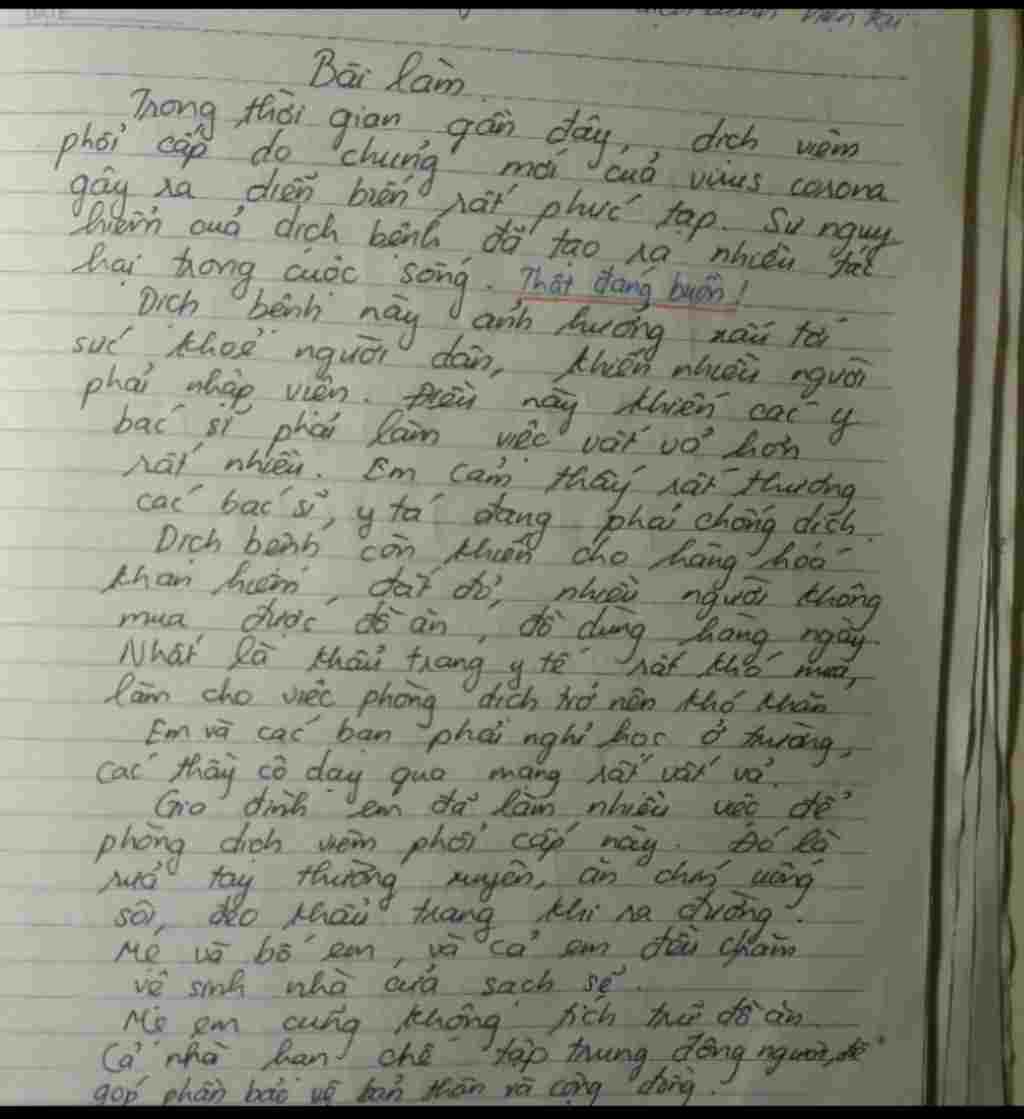 Bài làm
Trong thời gian gần đây, dịch viêm
phổi cấp do chủng mới của virus corona
gây ra diễn biến rất phức tạp. Sự nguy
hiểm của dịch bệnh đã tạo ra nhiều tác
hại trong cuộc sống. Thật đáng buồn!
Dịch bệnh này ảnh hưởng xấu tới
sức khoẻ người dân, khiến nhiều người
phải nhập viện. Điều này khiến các y
bác sĩ phải làm việc vất vả hơn
rất nhiều. Em cảm thấy rất thương
các bác sĩ, y tá đang phải chống dịch.
Dịch bệnh còn khiến cho hàng hoá
khan hiếm, đắt đỏ, nhiều người không
mua được đồ ăn, đồ dùng hàng ngày.
Nhất là khẩu trang y tế rất khó mua,
làm cho việc phòng dịch trở nên khó khăn
Em và các bạn phải nghỉ học ở trường,
các thầy cô dạy qua mạng rất vất vả.
Gia đình em đã làm nhiều việc để
phòng dịch viêm phổi cấp này. Đó là
rửa tay thường xuyên, ăn chín uống
sôi, đeo khẩu trang khi ra đường.
Mẹ và bố em, và cả em đều chăm
vệ sinh nhà cửa sạch sẽ.
Mẹ em cũng không tích trữ đồ ăn.
Cả nhà hạn chế tập trung đông người, để
góp phần bảo vệ bản thân và cộng đồng.